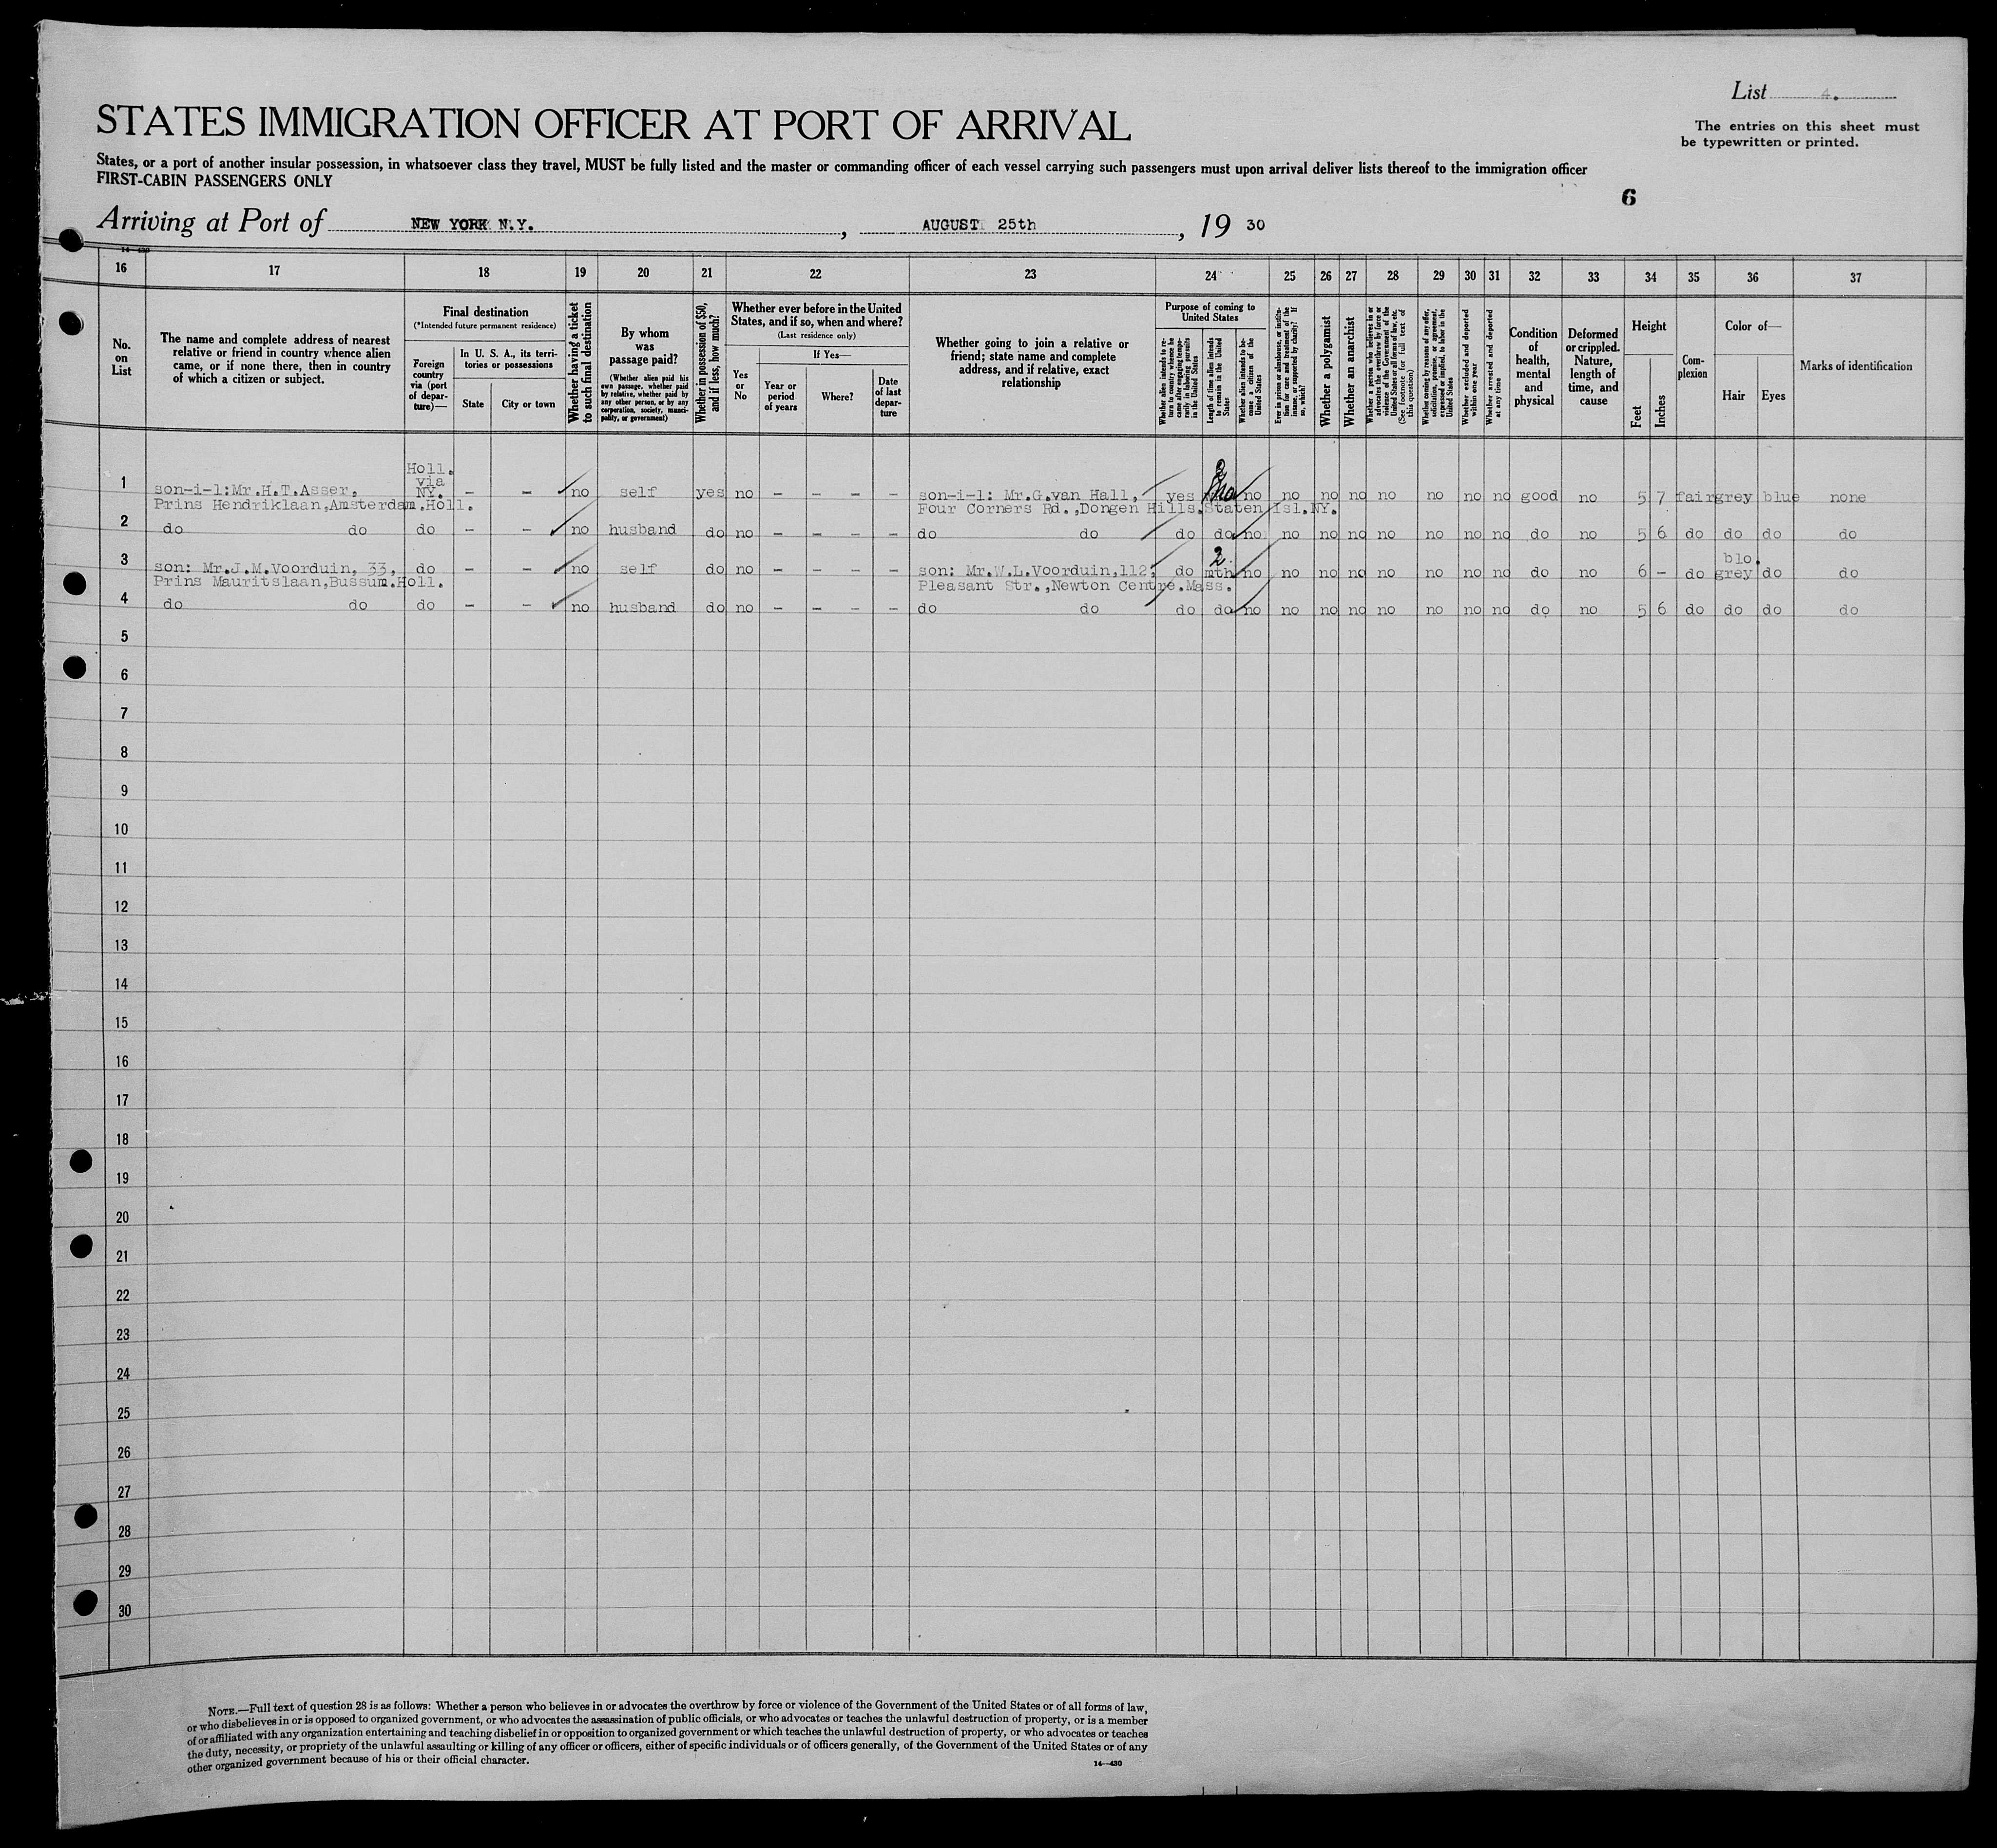 List 4.
The entries on this sheet must
be typewritten or printed.
STATES IMMIGRATION OFFICER AT PORT OF ARRIVAL
States, or a port of another insular possession, in whatsoever class they travel, MUST be fully listed and the master or commanding officer of each vessel carrying such passengers must upon arrival deliver lists thereof to the immigration officer
FIRST-CABIN PASSENGERS ONLY
6
Arriving at Port of NEW YORK N.Y. , AUGUST 25th , 19 30
16 17 18 19 20 21 22 23 24 25 26 27 28 29 30 31 32 33 34 35 36 37
No. on List
The name and complete address of nearest relative or friend in country whence alien came, or if none there, then in country of which a citizen or subject.
Final destination
(*Intended future permanent residence)
Foreign country via (port of departure)—
In U. S. A., its territories or possessions
State
City or town
Whether having a ticket to such final destination
By whom was passage paid?
(Whether alien paid his own passage, whether paid by relative, whether paid by any other person, or by any corporation, society, municipality, or government)
Whether in possession of $50, and if less, how much?
Whether ever before in the United States, and if so, when and where?
(Last residence only)
Yes or No
If Yes—
Year or period of years
Where?
Date of last departure
Whether going to join a relative or friend; state name and complete address, and if relative, exact relationship
Purpose of coming to United States
Whether alien intends to return to country whence he came after engaging temporarily in laboring pursuits in the United States
Length of time alien intends to remain in the United States
Whether alien intends to become a citizen of the United States
Ever in prison or almshouse, or institution for care and treatment of the insane, or supported by charity? If so, which?
Whether a polygamist
Whether an anarchist
Whether a person who believes in or advocates the overthrow by force or violence of the Government of the United States or all forms of law, etc. (See footnote for full text of this question)
Whether coming by reasons of any offer, solicitation, promise, or agreement, expressed or implied, to labor in the United States
Whether excluded and deported within one year
Whether arrested and deported at any time
Condition of health, mental and physical
Deformed or crippled. Nature, length of time, and cause
Height
Feet
Inches
Complexion
Color of—
Hair
Eyes
Marks of identification
Holl.
via
1 son-i-l:Mr.H.T.Asser, NY. – – no self yes no – – – – son-i-l: Mr.G.van Hall, yes no no no no no no no no good no 5 7 fair grey blue none
Prins Hendriklaan,Amsterdam.Holl. Four Corners Rd.,Dongen Hills.Staten Isl.NY.
2 do do do – – no husband do no – – – – do do do do no no no no no no no no do no 5 6 do do do do
blo.
3 son: Mr.J.M.Voorduin, 33, do – – no self do no – – – – son: Mr.W.L.Voorduin,112, do 2 mth no no no no no no no no do no 6 – do grey do do
Prins Mauritslaan,Bussum.Holl. Pleasant Str.,Newton Centre.Mass.
4 do do do – – no husband do no – – – – do do do do no no no no no no no no do no 5 6 do do do do
5
6
7
8
9
10
11
12
13
14
15
16
17
18
19
20
21
22
23
24
25
26
27
28
29
30
NOTE.—Full text of question 28 is as follows: Whether a person who believes in or advocates the overthrow by force or violence of the Government of the United States or of all forms of law,
or who disbelieves in or is opposed to organized government, or who advocates the assassination of public officials, or who advocates or teaches the unlawful destruction of property, or is a member
of or affiliated with any organization entertaining and teaching disbelief in or opposition to organized government or which teaches the unlawful destruction of property, or who advocates or teaches
the duty, necessity, or propriety of the unlawful assaulting or killing of any officer or officers, either of specific individuals or of officers generally, of the Government of the United States or of any
other organized government because of his or their official character.
14—430